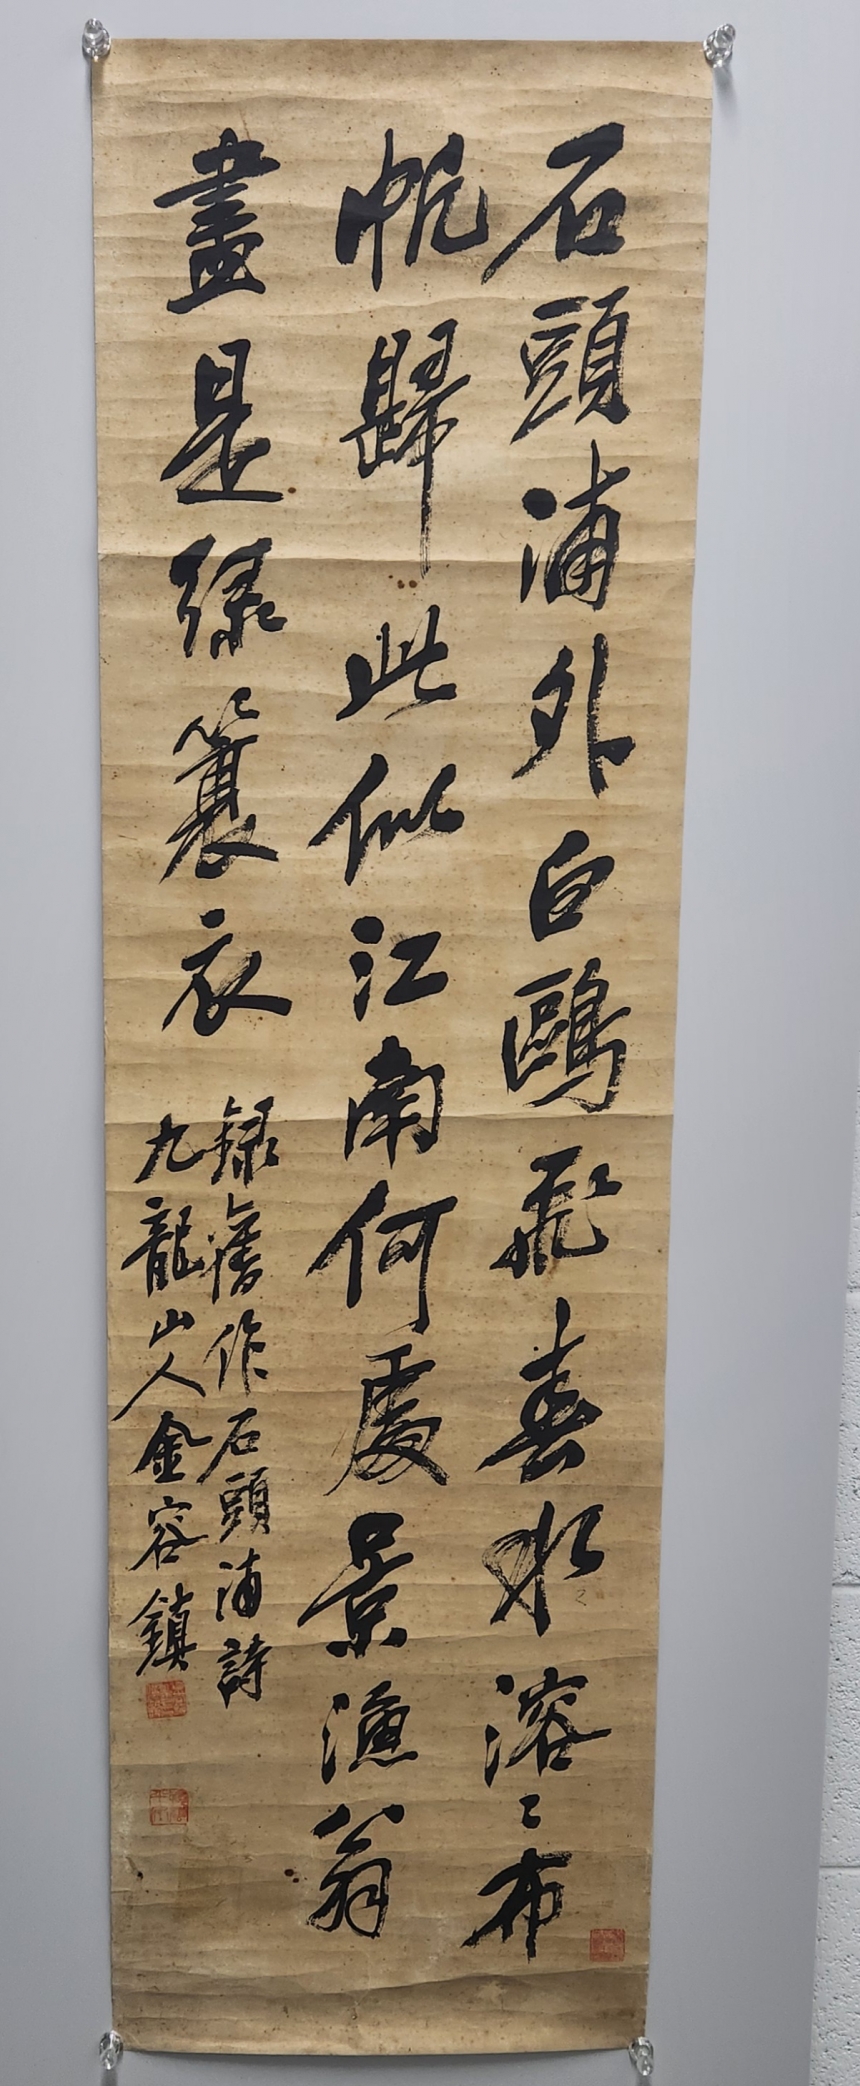 石頭浦外白鷗飛春水溶〻布
帆歸此似江南何處景漁翁
盡是綠簑衣
錄舊作石頭浦詩
九龍山人金容鎮